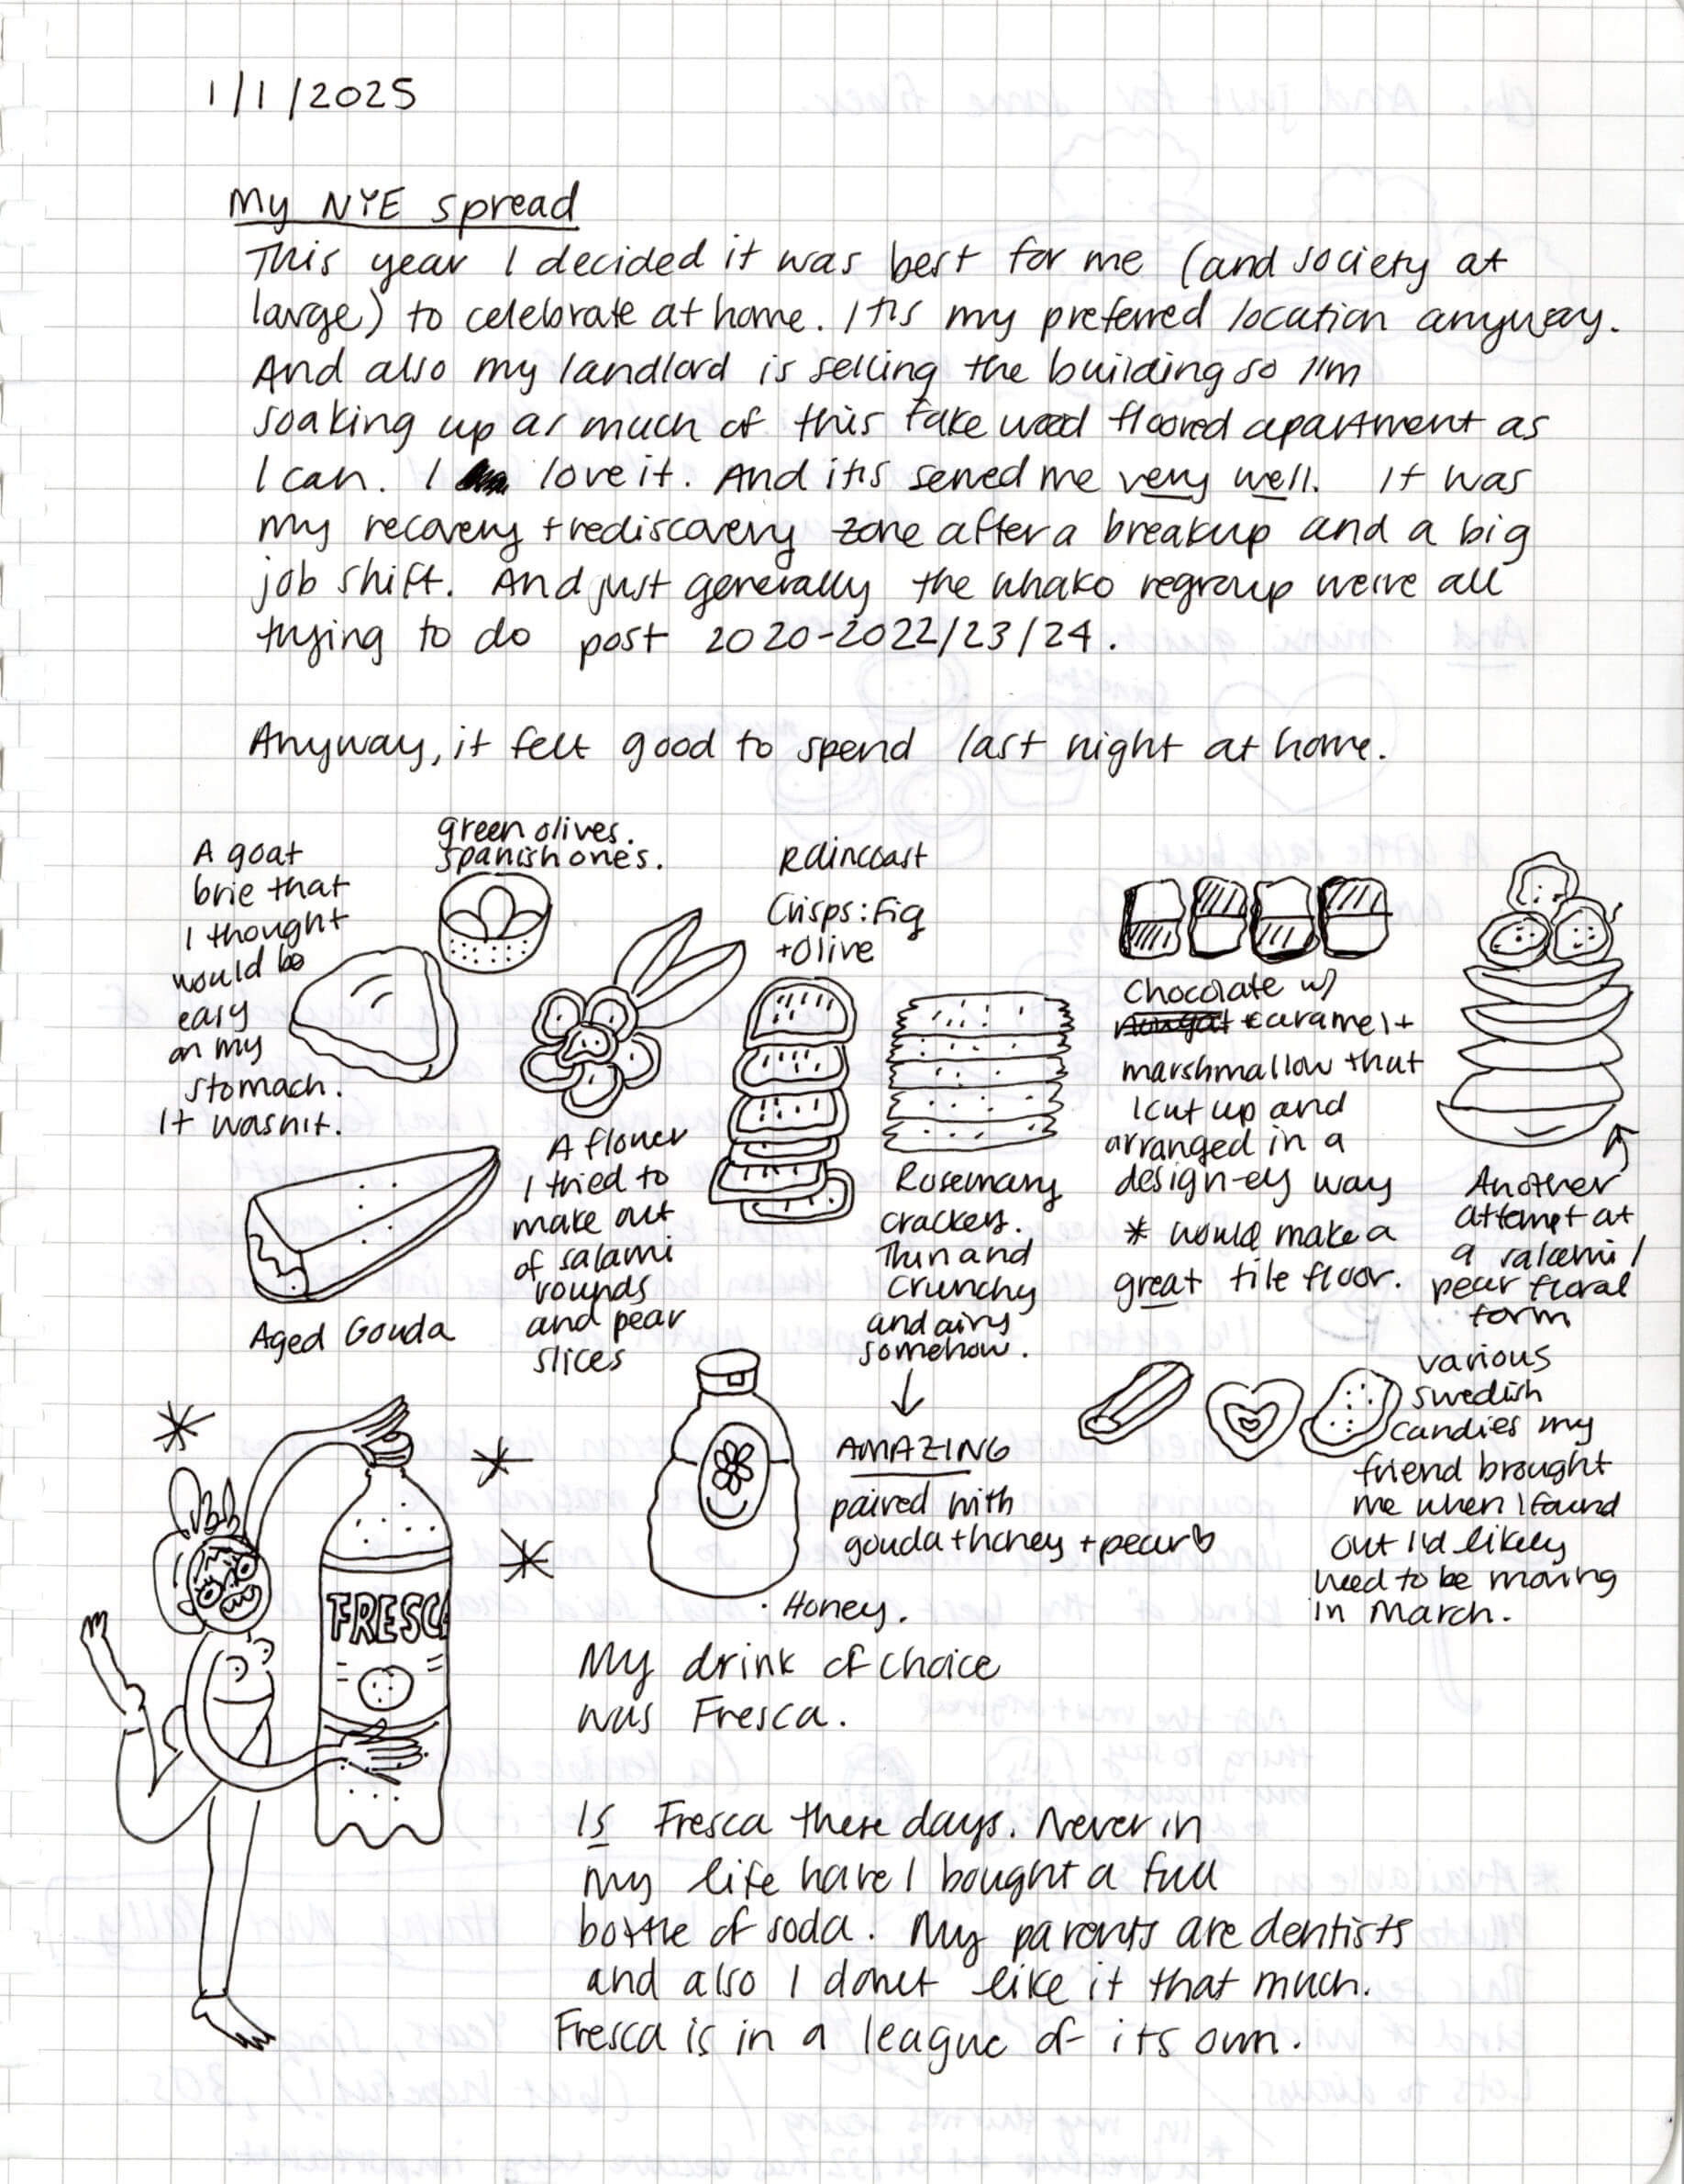 1/1/2025
My NYE spread
This year I decided it was best for me (and society at
large) to celebrate at home. It's my preferred location anyway.
And also my landlord is selling the building so I'm
soaking up as much of this fake wood floored apartment as
I can. I love it. And it's served me very well. It was
my recovery + rediscovery zone after a breakup and a big
job shift. And just generally the whako regroup we're all
trying to do post 2020-2022/23/24.
Anyway, it felt good to spend last night at home.
A goat
brie that
I thought
would be
easy
on my
stomach.
It wasn't.
green olives.
Spanish ones.
Raincoast
Crisps: Fig
+Olive
Chocolate w/
nougat caramel +
marshmallow that
I cut up and
arranged in a
design-ey way
* would make a
great tile floor.
Aged Gouda
A flower
I tried to
make out
of salami
rounds
and pear
slices
Rosemary
crackers.
Thin and
crunchy
and airy
somehow.
AMAZING
paired with
gouda + honey + pear
Another
attempt at
a salami/
pear floral
form
various
swedish
candies my
friend brought
me when I found
out I'd likely
need to be moving
in March.
Honey.
FRESCA
My drink of choice
was Fresca.
Is Fresca these days. Never in
my life have I bought a full
bottle of soda. My parents are dentists
and also I don't like it that much.
Fresca is in a league of its own.